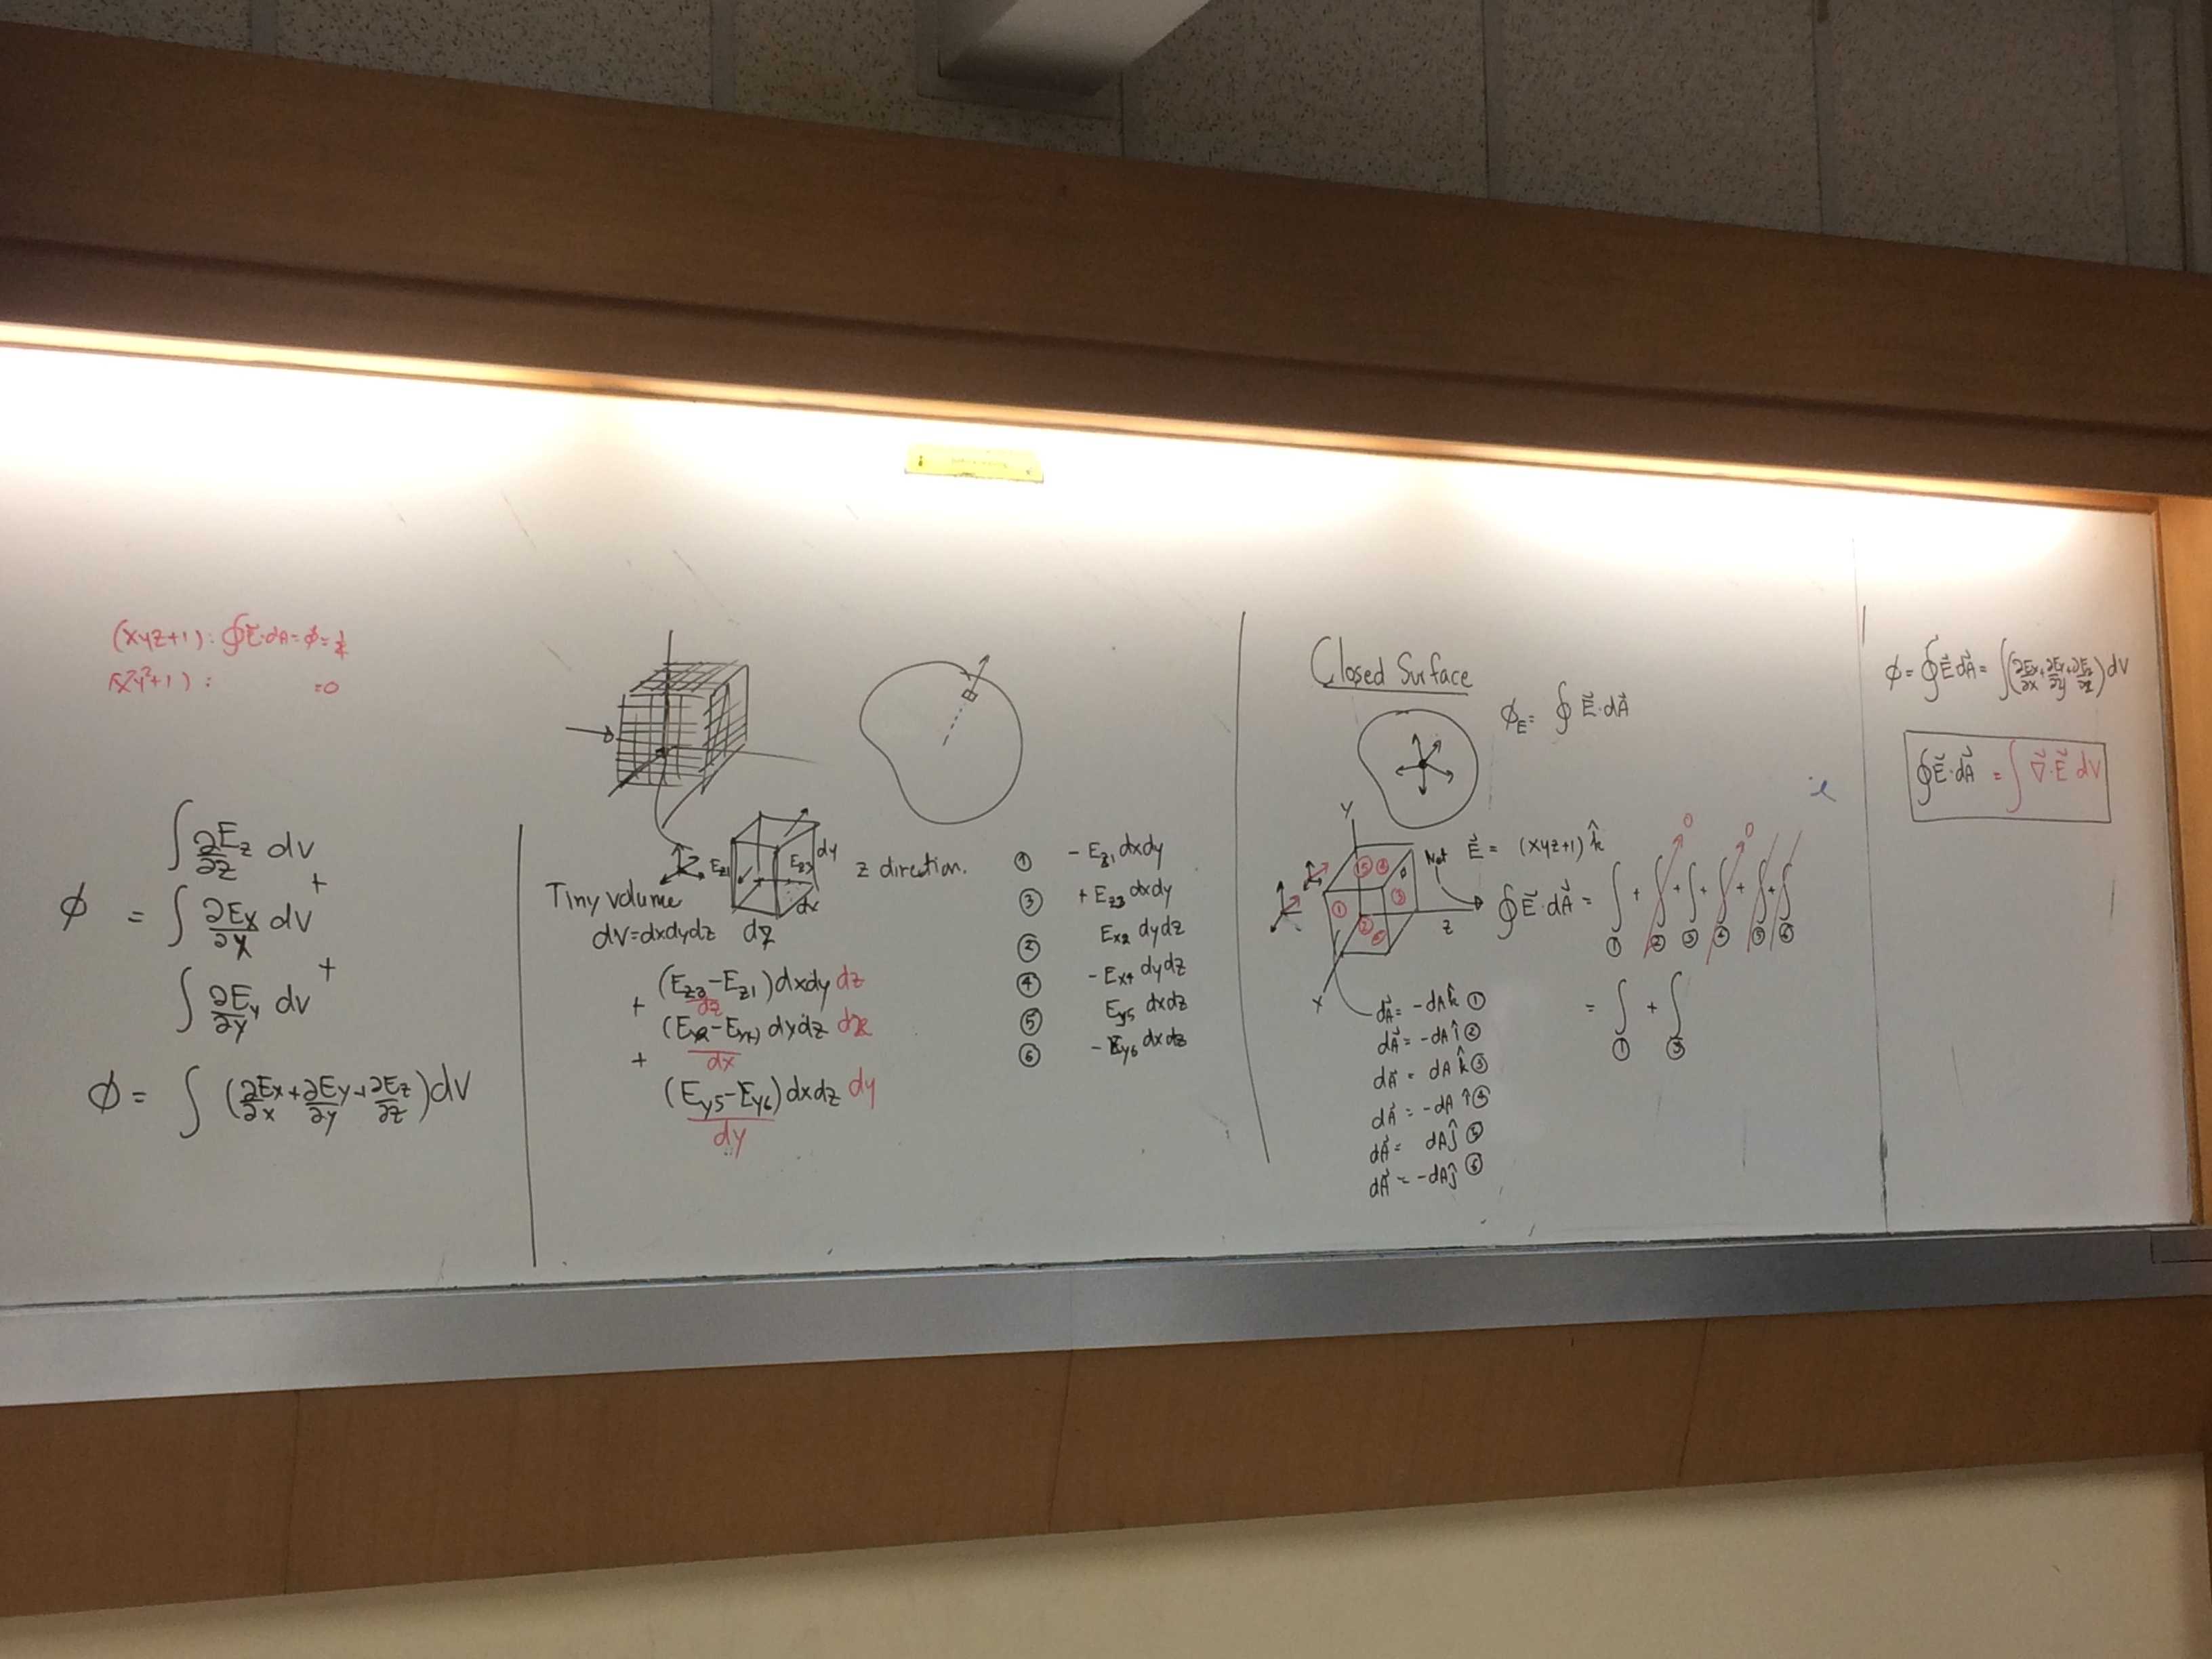 (xyz+1): ∮E⃗·dA = ϕ = 1/4
(x²y²+1): =0
∫ ∂Ez/∂z dv
+
ϕ = ∫ ∂Ex/∂x dv
+
∫ ∂Ey/∂y dv
ϕ = ∫ (∂Ex/∂x + ∂Ey/∂y + ∂Ez/∂z) dv
Ez1
Ez3
dy
dx
dz
z direction.
Tiny volume
dv=dxdydz
(Ez3-Ez1)/dz dxdy dz
+ (Ex2-Ex4)/dx dydz dx
+ (Ey5-Ey6)/dy dxdz dy
① -Ez1 dxdy
③ +Ez3 dxdy
② Ex2 dydz
④ -Ex4 dydz
⑤ Ey5 dxdz
⑥ -Ey6 dxdz
Closed Surface
ϕE = ∮ E⃗·dA⃗
y
x
z
①
③
Net
E⃗ = (xyz+1) k̂
∮ E⃗·dA⃗ = ∫① + ∫② + ∫③ + ∫④ + ∫⑤ + ∫⑥
0 0
= ∫① + ∫③
dA⃗ = -dA k̂ ①
dA⃗ = -dA î ②
dA⃗ = dA k̂ ③
dA⃗ = -dA î ④
dA⃗ = dA ĵ ⑤
dA⃗ = -dA ĵ ⑥
ϕ = ∮ E⃗·dA⃗ = ∫(∂Ex/∂x + ∂Ey/∂y + ∂Ez/∂z) dv
∮E⃗·dA⃗ = ∫ ∇⃗·E⃗ dV